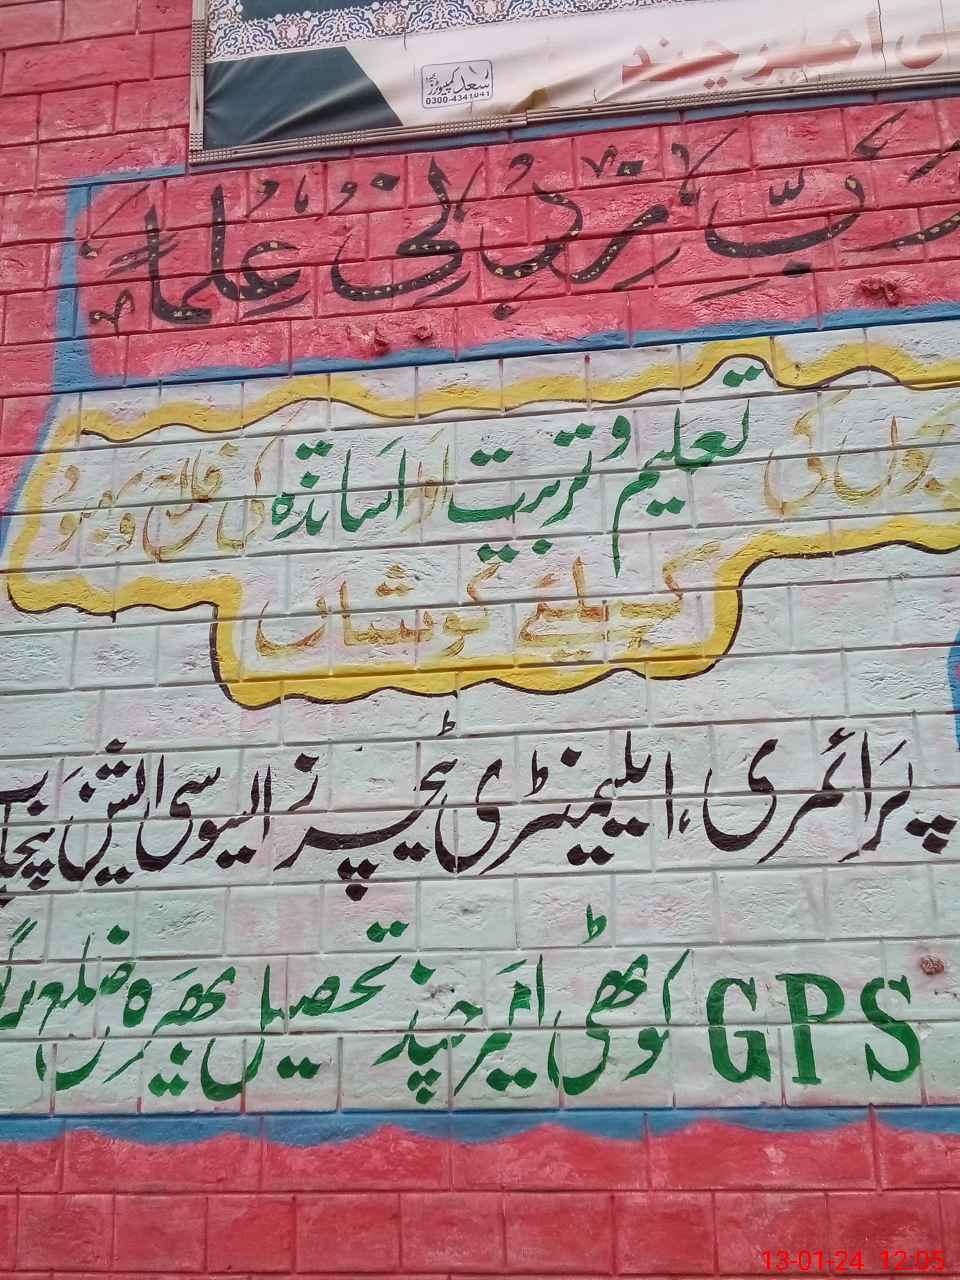 امیر چند
سعد کمپیوٹرز
0300-4341041
رَبِّ زِدْنِیْ عِلْمًا
بچوں کی تعلیم و تربیت اور اساتذہ کی فلاح و بہبود
کیلئے کوشاں
پرائمری، ایلیمنٹری ٹیچرز ایسوسی ایشن پنجاب
GPS کوٹھی امیر چند تحصیل بھیرہ ضلع سرگو
13-01-24 12:05